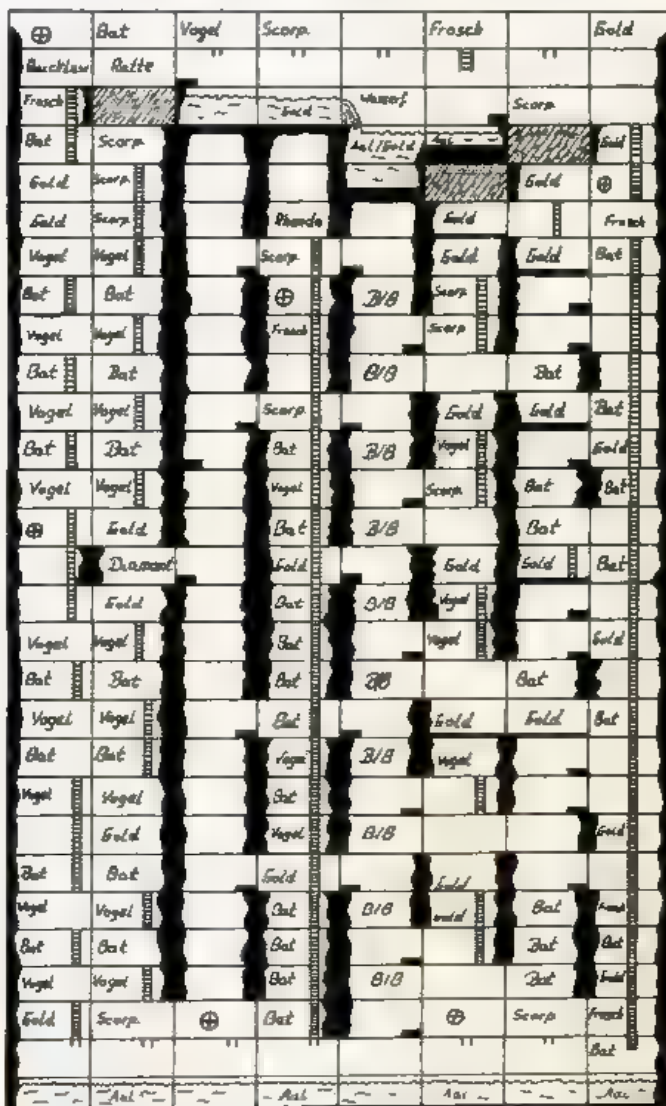 Bat Vogel Scorp. Frosch Gold
Ratte
Frosch Gold Wasserf Scorp.
Bat Scorp. Aal/Gold Aal Gold
Gold Scorp. Gold
Gold Scorp. Gold Frosch
Vogel Vogel Scorp. Gold Gold Bat
Bat Bat B/B Scorp.
Vogel Vogel Frosch Scorp.
Bat Bat B/B Bat
Vogel Vogel Scorp. Gold Gold Bat
Bat Bat Bat B/B Vogel Gold
Vogel Vogel Vogel Scorp. Bat Bat
Gold Bat B/B Bat
Diamant Gold Gold Gold Bat
Gold Bat B/B Vogel
Vogel Vogel Bat Vogel Gold
Bat Bat Bat B/B Bat
Vogel Vogel Bat Gold Gold Bat
Bat Bat Vogel B/B Vogel
Vogel Vogel Bat
Gold Vogel B/B Gold
Bat Bat Gold Gold
Vogel Vogel Bat B/B Gold Bat Frosch
Bat Bat Bat Bat Bat
Vogel Vogel Bat B/B Bat Gold
Gold Scorp. Bat Scorp Frosch
Bat
Aal Aal Aal Aal